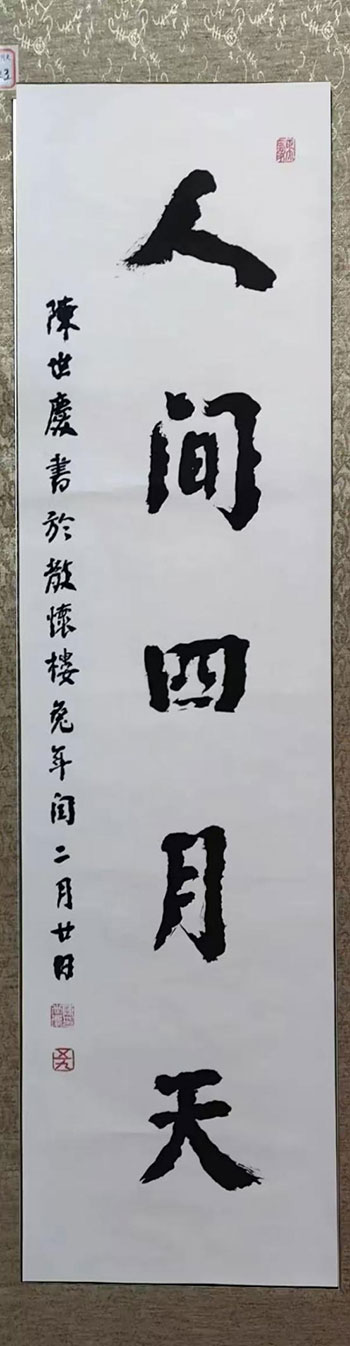 人间四月天
陳世慶書於散懷楼兔年闰二月廿日
五九